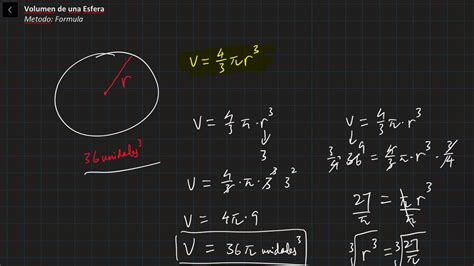 Volumen de una Esfera
Metodo: Formula
r
36 unidades³
V = 4/3 π r³
V = 4/3 π · r³
3
V = 4/3 π · 3³ 3²
V = 4π · 9
V = 36π unidades³
V = 4/3 π · r³
3/4 · 36 9 = 4/3 π · r³ · 3/4
27/π = π r³/π
³√r³ = ³√27/π